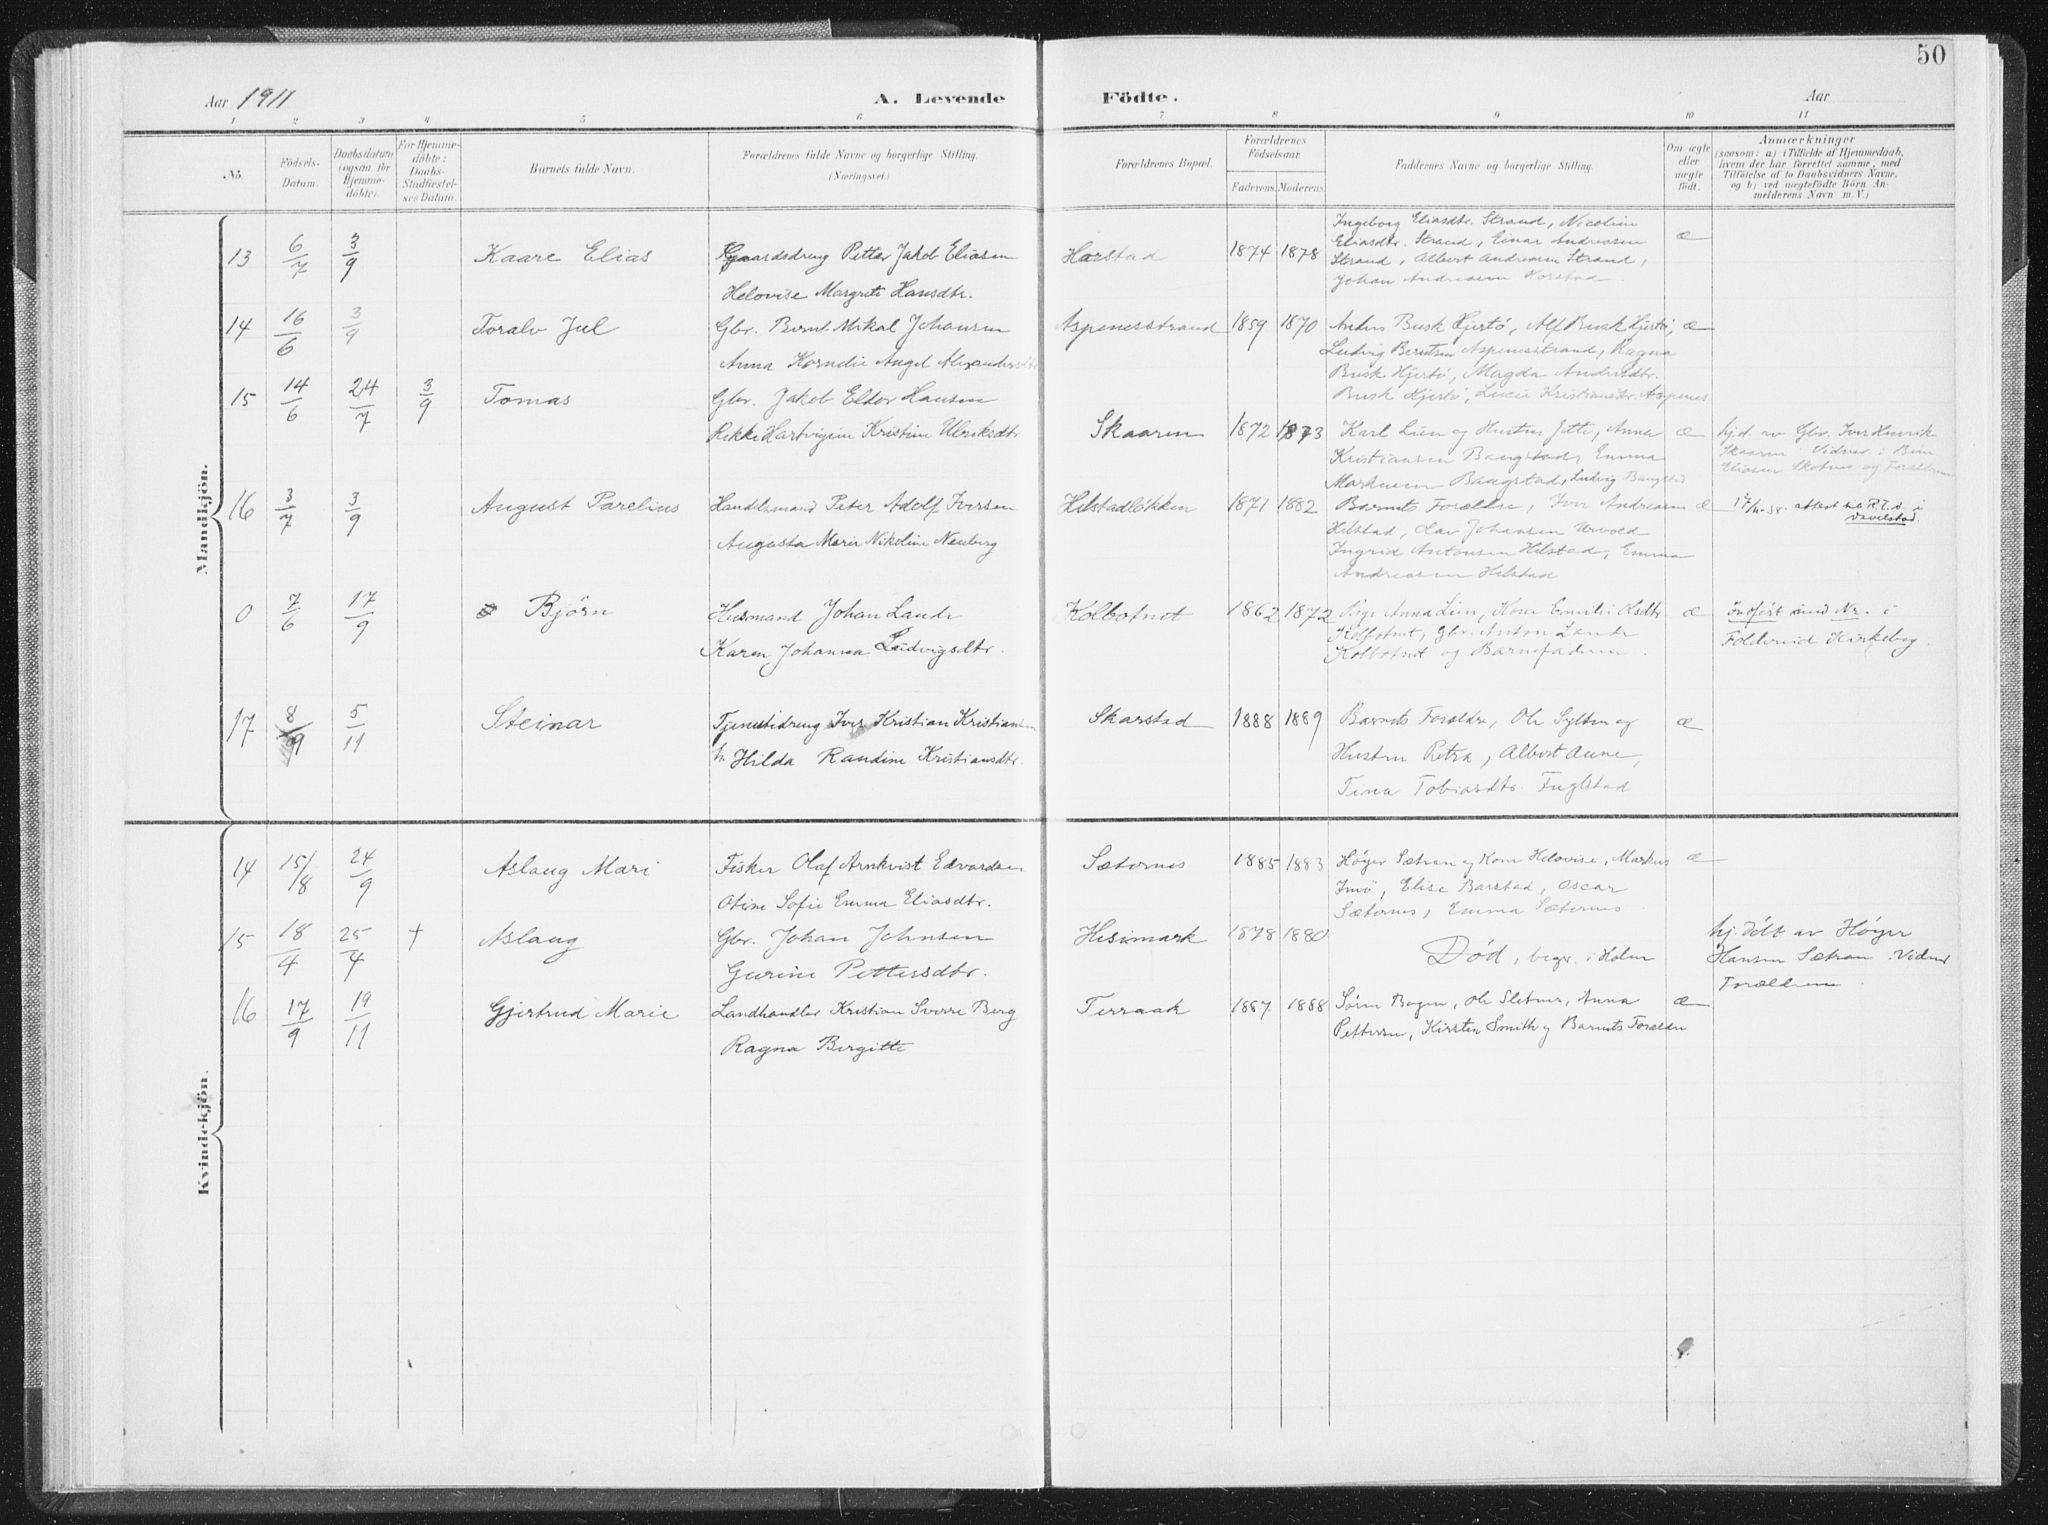 50
Aar 1911
A. Levende Födte.
Aar
1 2 3 4 5 6 7 8 9 10 11
No.
Födsels-Datum.
Daabsdatum (ogsaa for Hjemme-döbte).
For Hjemme-döbte: Daabs-Stadfæstel-ses Datum.
Barnets fulde Navn.
Forældrenes fulde Navne og borgerlige Stilling.
(Næringsvei.)
Forældrenes Bopæl.
Forældrenes Födselsaar.
Faderens. Moderens.
Faddernes Navne og borgerlige Stilling.
Om ægte eller uægte födt.
Anmærkninger
(saasom: a) i Tilfælde af Hjemmedaab,
hvem der har forrettet samme, med
Tilföielse af to Daabsvidners Navne,
og b) ved uægtefödte Börn An-
melderens Navn m. V.)
Mandkjön.
13 6/7 3/9 Kaare Elias
Gaardsdreng Petter Jakob Eliasen
Helovise Margrete Hansdtr.
Harstad 1874 1878
Ingeborg Eliasdtr. Strand, Nicoline
Eliasdtr. Strand, Einar Andreasen
Strand, Albert Andreasen Strand,
Johan Andreasen Horstad
æ
14 16/6 3/9 Toralv Jul
Gbr. Bernt Mikal Johansen
Anna Kornelie Angel Alexandersdtr
Aspenesstrand 1859 1870
Anders Busk Hjertö, Alf Busk Hjertö,
Ludvig Berntsen Aspenesstrand, Ragna
Busk Hjertö, Magda Andersdtr.
Busk Hjertö, Lucie Kristiansdtr. Aspenes
æ
15 14/6 24/7 3/9 Tomas
Gbr. Jakob Eltor Hansen
Rikke Hartvigine Kristine Ulriksdtr
Skaaren 1872 1873
Karl Lien og Hustru Jette, Anna
Kristiansen Bangstad, Emma
Markusen Bangstad, Ludvig Bangstad
æ
hj.d. av Gbr. Iver Henrik
Skaaren Vidner: Bern
Eliasen Skotnes og Forældrene
16 3/7 3/9 August Parelius
Handelsmand Peter Adolf Iversen
Augusta Marie Nikoline Neuberg
Helstadløkken 1871 1882
Barnets Forældre, Iver Andreasen
Helstad, Olav Johansen Urvold
Ingrid Antonsen Helstad, Emma
Andreasen Helstad
æ
attest til R.T.v. i
0 7/6 17/9 Björn
Husmand Johan Lande
Karen Johanna Ludvigsdtr.
Kolbotnet 1862 1872
Pige Anna Lien, Kone Emilie Olsdtr
Kolbotnet, Gbr. Anton Lande
Kolbotnet og Barnefaderen.
æ
Indført med Nr. i
Foldereid Kirkebog.
17 8/9 5/11 Steinar
Tjenestedreng Iver Kristian Kristiansen
h. Hilda Randine Kristiansdtr.
Skarstad 1888 1889
Barnets Forældre, Ole Sylten og
Hustru Petra, Albert Aune,
Tina Tobiasdtr. Fuglstad
æ
Kvindekjön.
14 15/8 24/9 Aslaug Mari
Fisker Olaf Arnkvist Edvardsen
Otine Sofie Emma Eliasdtr.
Sæternes 1885 1883
Høyer Sætran og Kone Helovise, Markus
Imö, Elise Barstad, Oscar
Sæternes, Emma Sæternes
æ
15 18/4 25/4 † Aslaug
Gbr. Johan Johnsen
Gurine Pettersdtr.
Heisimark 1878 1880
Død, begr. i Holm
hj.døbt av Høyer
Hansen Sætran. Vidner
Forældrene
16 17/9 19/11 Gjertrud Marie
Landhandler Kristian Sverre Berg
Ragna Bergitte
Terraak 1887 1888
Sørn Bogen, Ole Sletnes, Anna
Pettersen, Kirsten Smith og Barnets Forældre
æ